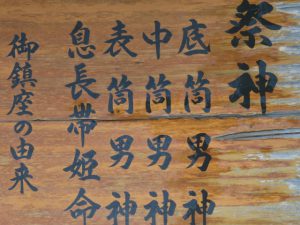 祭神
底筒男神
中筒男神
表筒男神
息長帯姫命
御鎮座の由来